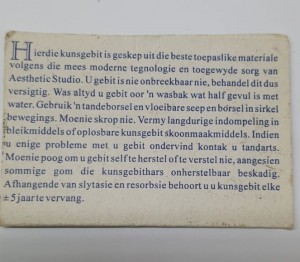 Hierdie kunsgebit is geskep uit die beste toepaslike materiale
volgens die mees moderne tegnologie en toegewyde sorg van
Aesthetic Studio. U gebit is nie onbreekbaar nie, behandel dit dus
versigtig. Was altyd u gebit oor 'n wasbak wat half gevul is met
water. Gebruik 'n tandeborsel en vloeibare seep en borsel in sirkel
bewegings. Moenie skrop nie. Vermy langdurige indompeling in
bleikmiddels of oplosbare kunsgebit skoonmaakmiddels. Indien
u enige probleme met u gebit ondervind kontak u tandarts.
Moenie poog om u gebit self te herstel of te verstel nie, aangesien
sommige gom die kunsgebithars onherstelbaar beskadig.
Afhangende van slytasie en resorbsie behoort u u kunsgebit elke
±5 jaar te vervang.